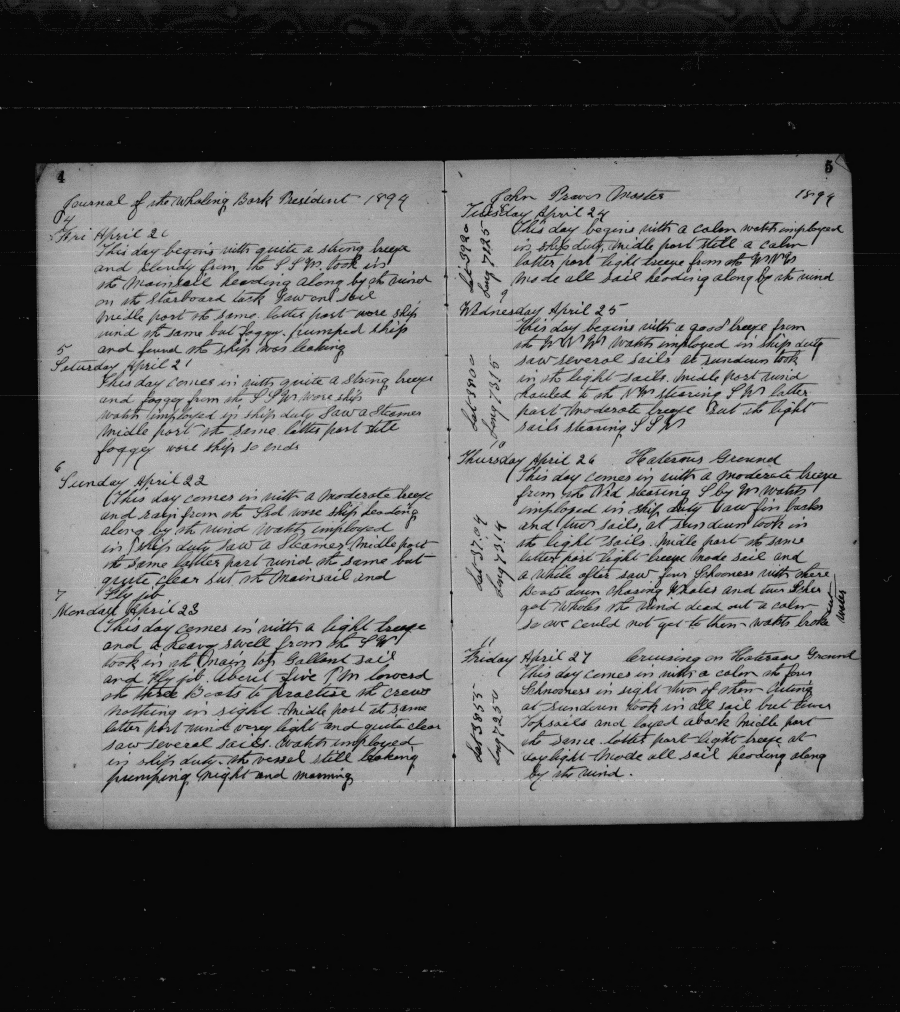 4
Journal of the Whaling Bark President 1894
4
Fri April 20
This day begins with quite a string breeze
and steudy from the S S W. took in
the Mainsail heading along by the wind
on the Starboard tack Saw one sail
Midle part the same latter part wore ship
wind the same but foggy. pumped ship
and found the ship was leaking
5
Saturday April 21
This day comes in with quite a string breeze
and foggy from the S S W. wore ship
watch employed in ship duty Saw a Steamer
Midle part the same latter part still
foggy wore ship so ends
6
Sunday April 22
This day comes in with a Moderate breeze
and rain from the Sud wore ship heading
along by the wind watch imployed
in ship duty saw a Steamer Midle part
the same latter part wind the same but
quite clear sut the Mainsail and
Fly jib
7
Monday April 23
This day comes in with a light breeze
and a heavy swell from the S W
took in the Main top Gallant sail
and Fly jib. About five P M lowerd
the three Boats to practise the crews
nothing in sight. Midle part the same
latter part wind very light and quite clear
saw several sails. watch imployed
in ship duty. the vessel still leaking
pumping night and morning
5
John Master 1894
Tuesday April 24
This day begins with a calm watch imployed
in ship duty midle part still a calm
latter part light breeze from the W N W
made all sail heading along by the wind
Lat 39 20
Long 71 25
9
Wednesday April 25
This day begins with a good breeze from
the W N W. Watch imployed in ship duty
saw several sails at sundown took
in the light sails. Midle part wind
hauled to the N W stearing S W latter
part moderate breeze Sut the light
sails stearing S S W
Lat 38 00
Long 73 15
10
Thursday April 26 Haterous Ground
This day comes in with a moderate breeze
from the N'd stearing S by W. Watch
imployed in ship duty Saw fin backs
and two sails, at sundown took in
the light sails. Midle part the same
latter part light breeze Made sail and
a while after saw four Schooners with there
Boats down chasing Whales and two Scher
got Whales the wind dead out a calm
so we could not get to them watch broke
out water
Lat 37.04
Long 73.14
11
Friday April 27 Cruising on Hateraes Ground
This day comes in with a calm the four
Schnooners in sight two of them cuting
at sundown took in all sail but two
Topsails and layed aback Midle part
the same. latter part light breeze at
daylight Made all sail heading along
by the wind.
Lat 38 55
Long 72 50